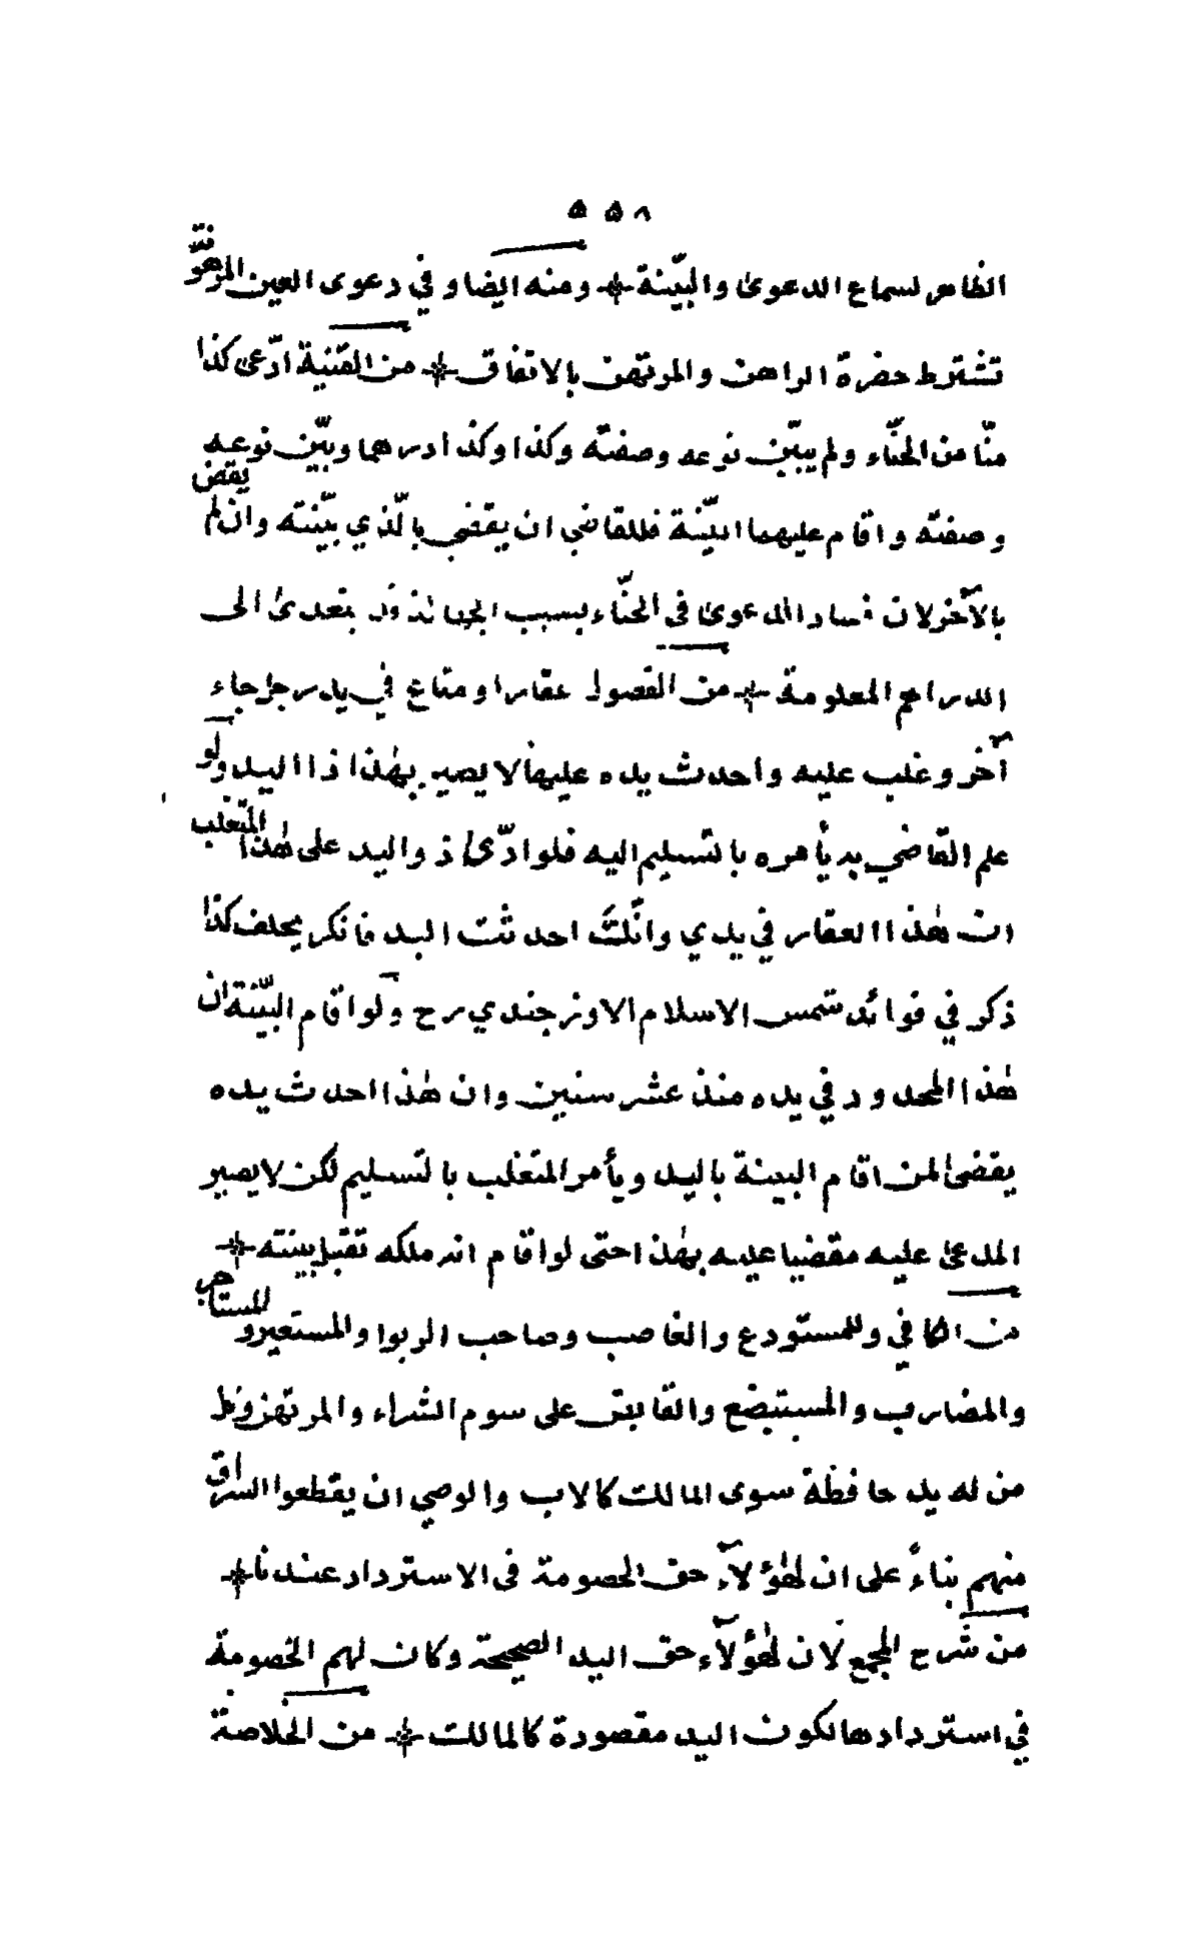 ٥٥٨
الظاهر لسماع الدعوىٰ والبيّنة ۞ ومنه ايضا وفي دعوى العين المرهونة
تشترط حضرة الراهن والمرتهن بالاتفاق ۞ من القنية ادّعى كذا
منّا من الحنّاء ولم يبيّن نوعه وصفته وكذا وكذا درهما وبيّن نوعه
وصفته واقام عليهما البيّنة فللقاضي ان يقضي بالّذي بيّنته وان لم يقض
بالآخر لان فساد الدعوىٰ في الحنّاء بسبب الجهالة لا يتعدىٰ الى
الدراهم المعلومة ۞ من الفصول عقار او متاع في يد رجل جاء
آخر وغلب عليه واحدث يده عليها لا يصير بهٰذا ذا اليد ولو
علم القاضي به يأمره بالتسليم اليه فلو ادّعىٰ ذو اليد على هٰذا المتغلب
ان هٰذا العقار في يدي وانّك احدثت اليد فانكر يحلف كذا
ذكر في فوائد شمس الاسلام الاوزجندي رح ولو اقام البيّنة ان
هٰذا المحدود في يده منذ عشر سنين وان هٰذا احدث يده
يقضىٰ لمن اقام البينة باليد ويأمر المتغلب بالتسليم لكن لا يصير
المدعىٰ عليه مقضيا عليه بهٰذا حتى لو اقام انه ملكه تقبل بينته ۞
من الكافي وللمستودع والغاصب وصاحب الربوا والمستعير وللمستاجر
والمضارب والمستبضع والقابض على سوم الشراء والمرتهن وكل
من له يد حافظة سوى المالك كالاب والوصي ان يقطعوا السراق
منهم بناءً على ان لهٰؤلآء حق الخصومة في الاسترداد عندنا ۞
من شرح المجمع لان لهٰؤلآء حق اليد الصحيحة وكان لهم الخصومة
في استردادها لكون اليد مقصودة كالمالك ۞ من الخلاصة